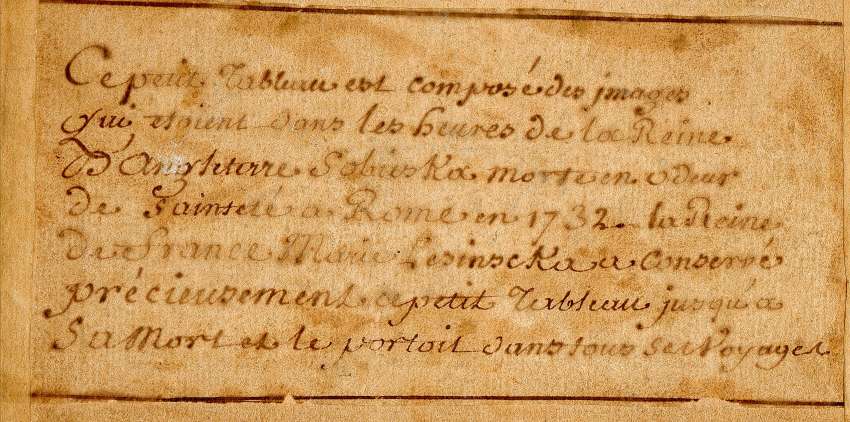 Ce petit Tableau est composé des jmages
qui étoient dans les heures de la Reine
D'Angleterre Sobieska morte en odeur
de Sainteté a Rome en 1732. la Reine
de france Marie Lesinscka a conservé
précieusement ce petit Tableau jusqu'a
Sa Mort et le portoit dans tous ses Voyages